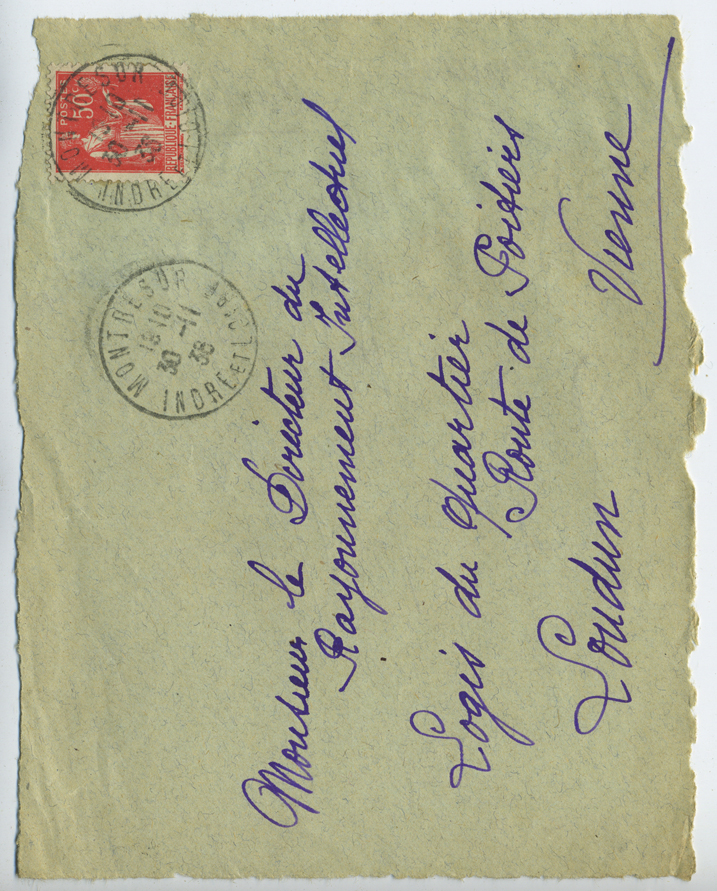 POSTES
50c
RÉPUBLIQUE FRANÇAISE
MONTRESOR
30
38
INDRE ET L
MONTRESOR
18 10
30 -11
38
INDRE ET L
Monsieur le Directeur du
Rayonnement Intellectuel
Logis du Quartier
Route de Poitiers
Loudun
Vienne